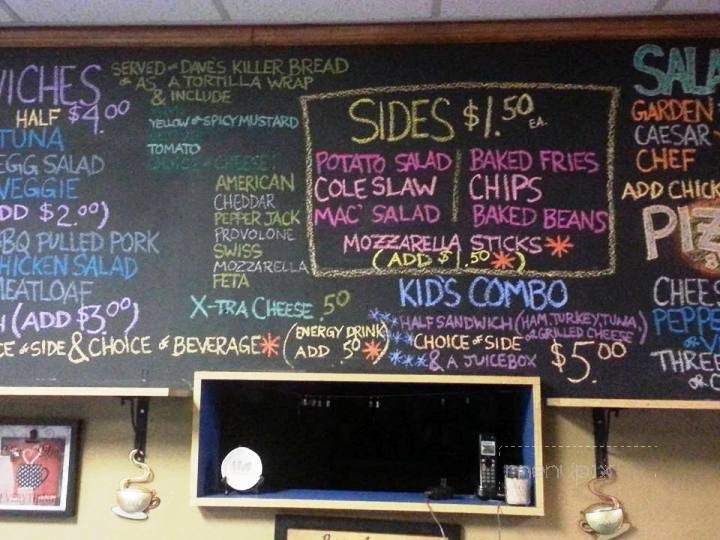 WICHES
SERVED on DAVES KILLER BREAD
or AS A TORTILLA WRAP
& INCLUDE
HALF $4.00
TUNA
EGG SALAD
VEGGIE
ADD $2.00)
BBQ PULLED PORK
CHICKEN SALAD
MEATLOAF
(ADD $3.00)
YELLOW or SPICY MUSTARD
TOMATO
CHEESE:
AMERICAN
CHEDDAR
PEPPER JACK
PROVOLONE
SWISS
MOZZARELLA
FETA
X-TRA CHEESE .50
CE of SIDE & CHOICE of BEVERAGE*
(ENERGY DRINK
ADD .50*)
SIDES $1.50 EA.
POTATO SALAD
COLE SLAW
MAC' SALAD
BAKED FRIES
CHIPS
BAKED BEANS
MOZZARELLA STICKS*
(ADD $1.50*)
KID'S COMBO
***HALF SANDWICH (HAM, TURKEY, TUNA, or GRILLED CHEESE)
***CHOICE of SIDE
***& A JUICEBOX $5.00
SALA
GARDEN
CAESAR
CHEF
ADD CHICK
PIZ
CHEES
PEPPE
or V
THREE
or C
menupix